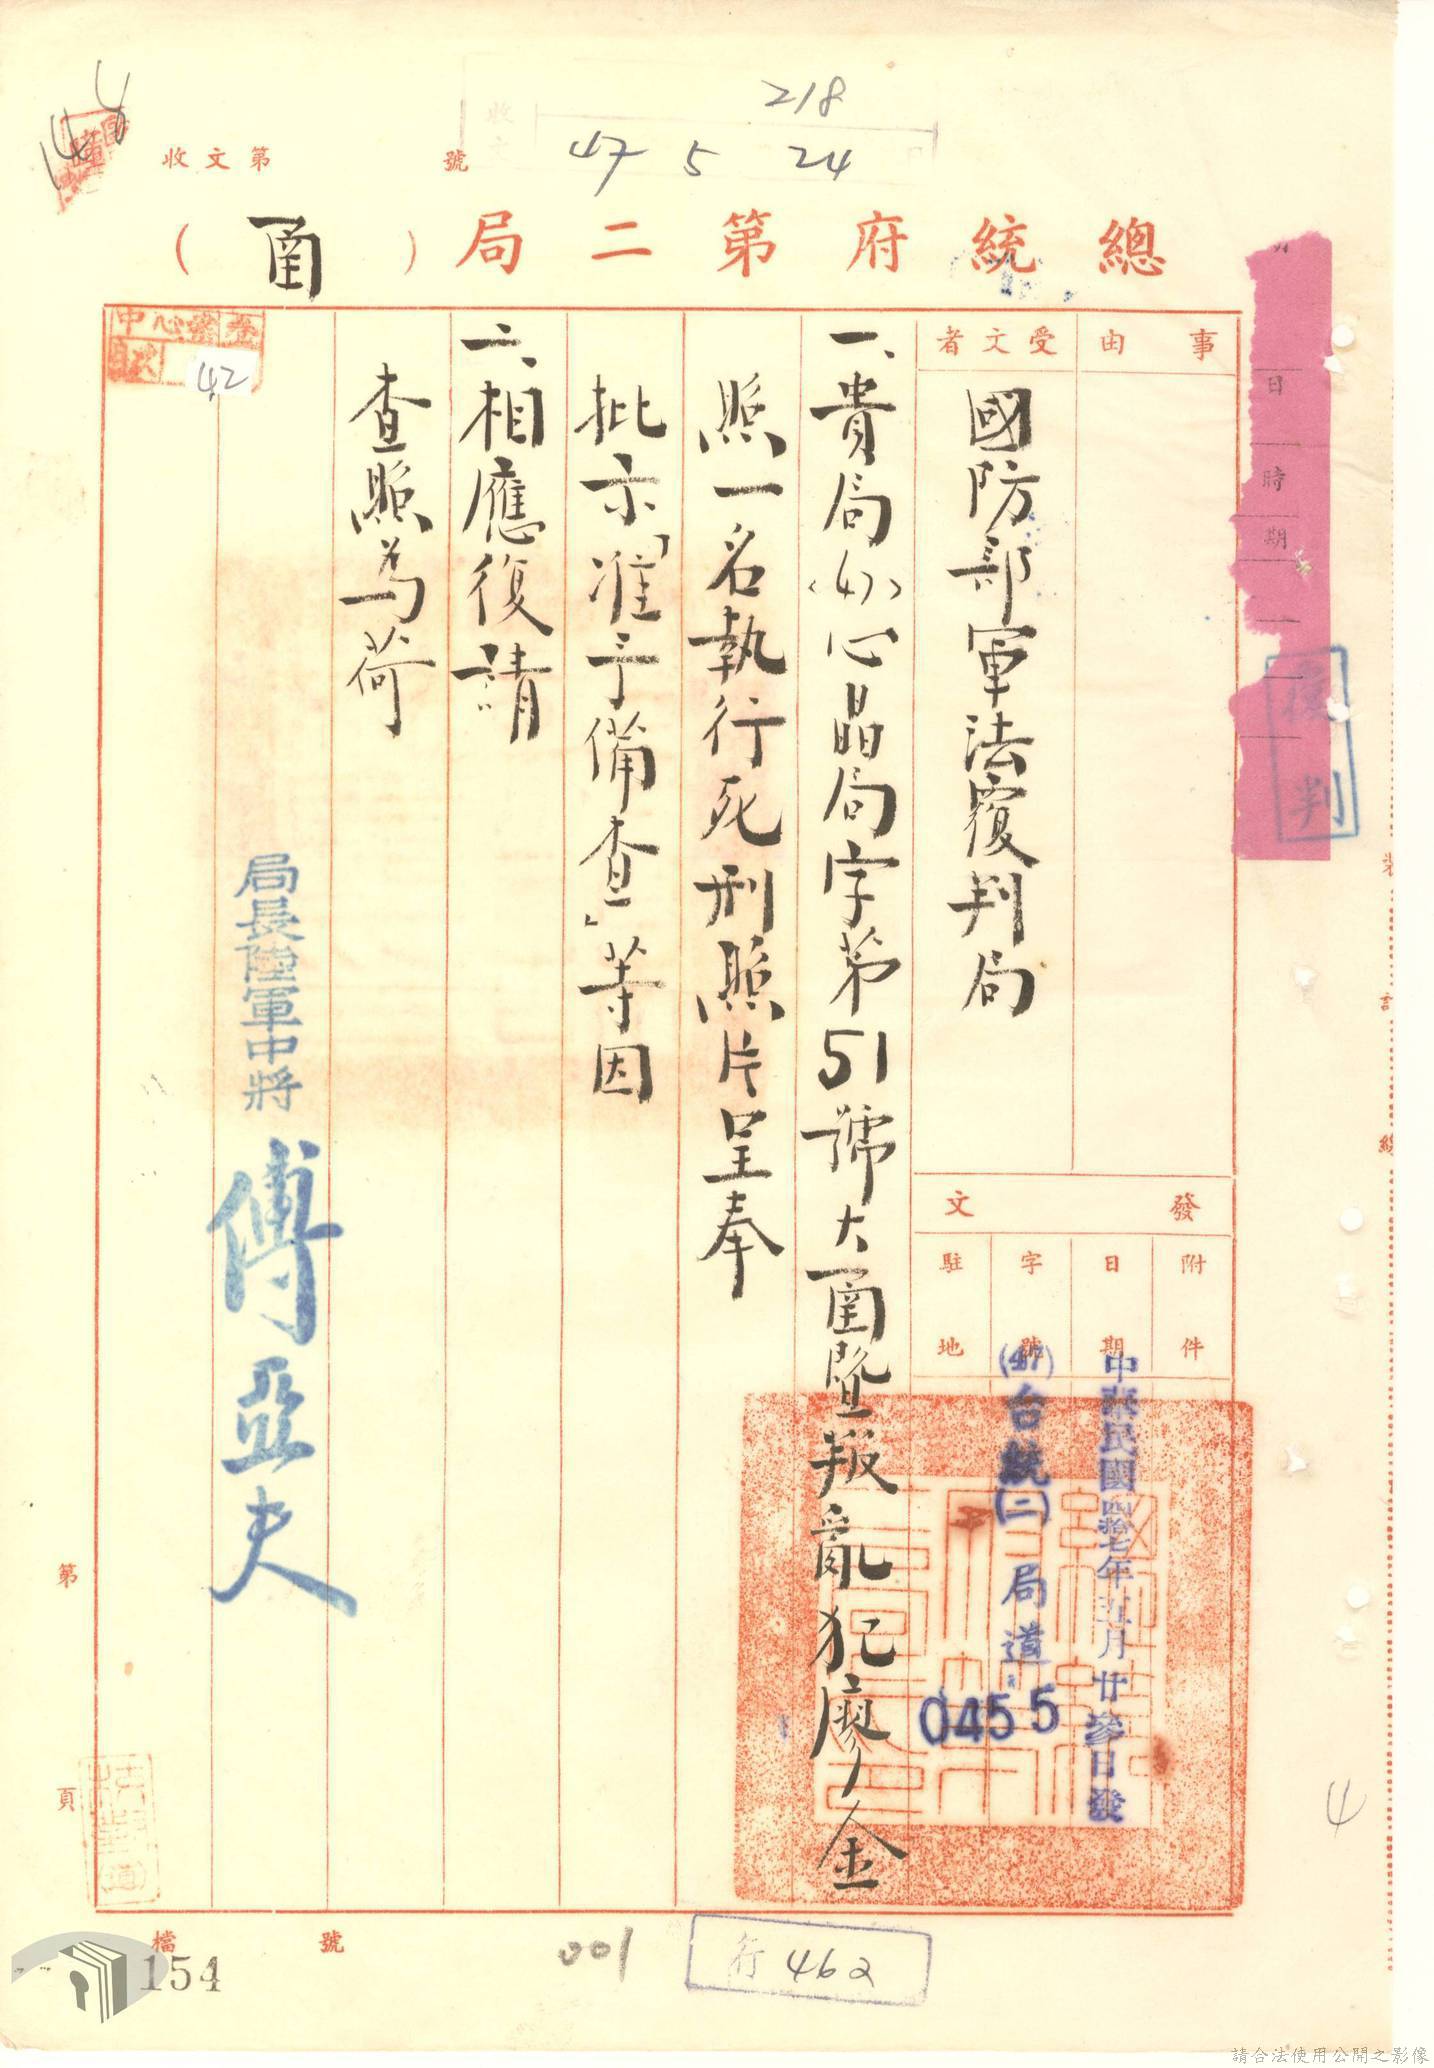 218
47 5 24
收文第 號
總統府第二局(函)
事由
受文者
國防部軍法覆判局
發文
附件
日期
字號
駐地
中華民國四拾七年五月廿參日發
(47)台統(二)局道
0455
一、貴局(47)心晶局字第51號大函暨叛亂犯廖金
照一名執行死刑照片呈奉
批示「准予備查」等因
二、相應復請
查照為荷
局長陸軍中將
傅亞夫
42
日
時
期
復判
裝
訂
線
第
頁
4
檔 號
154
001
行462
請合法使用公開之影像